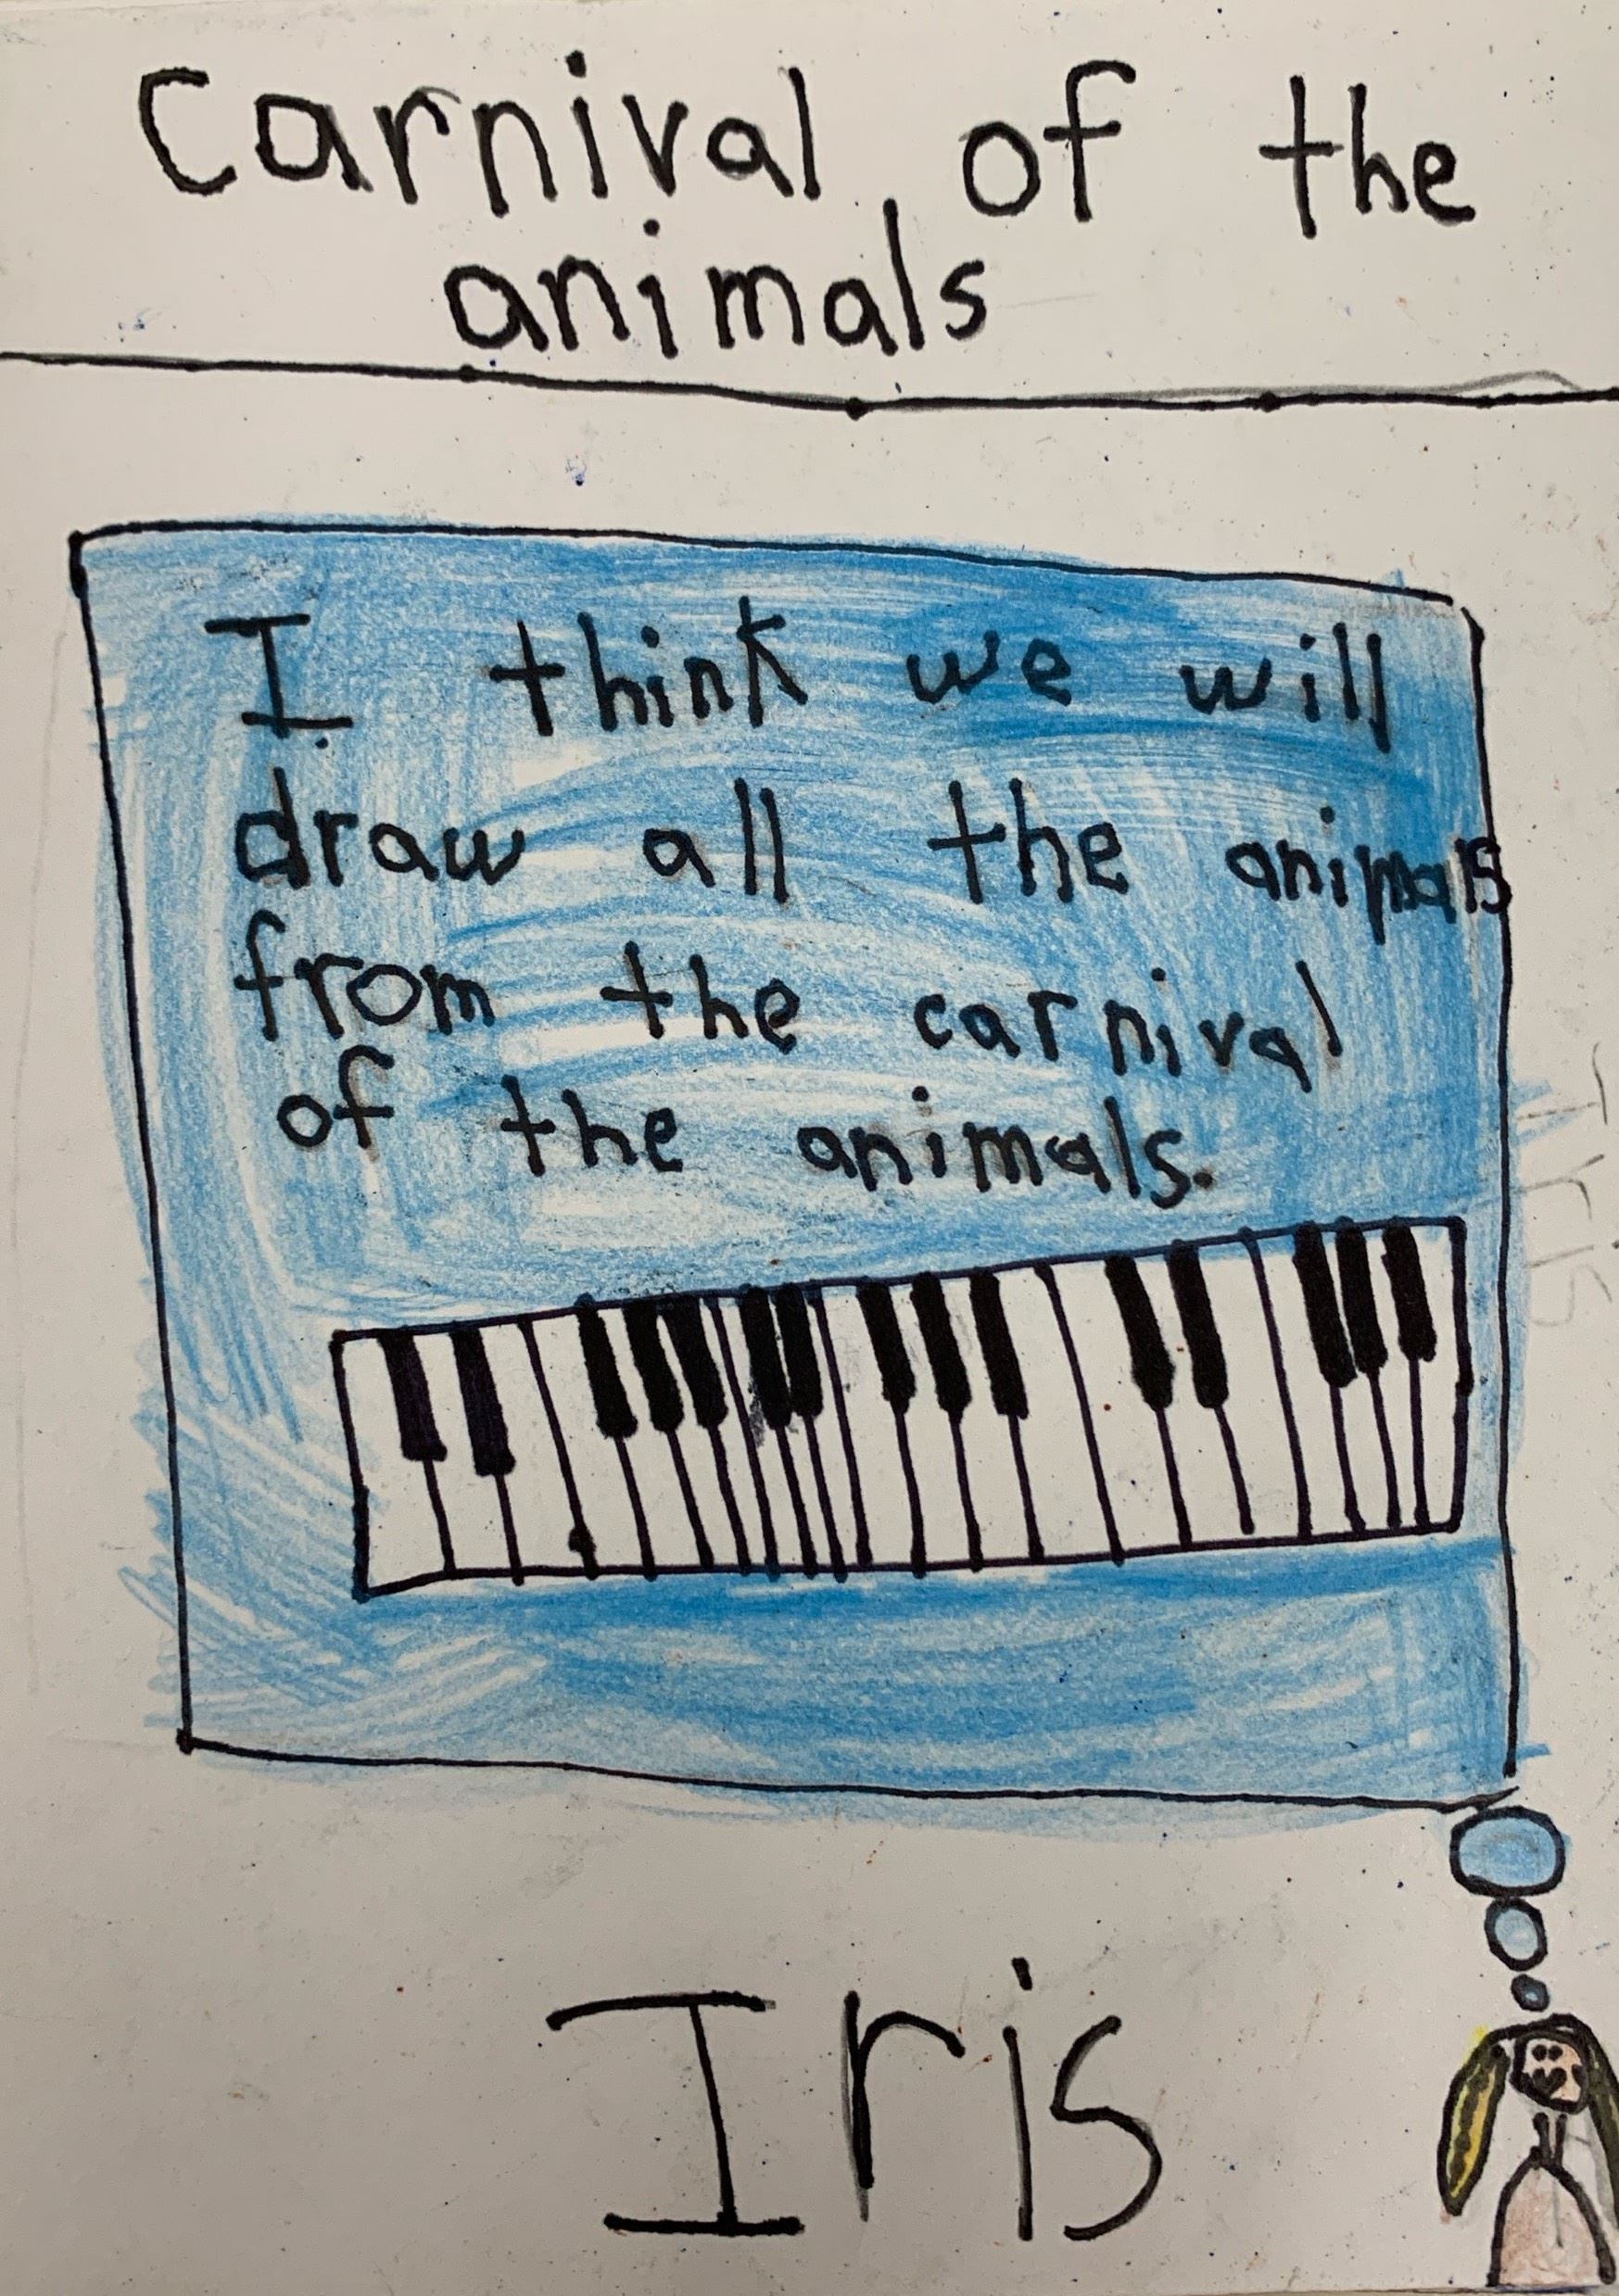 Carnival of the
animals
I think we will
draw all the animals
from the carnival
of the animals.
Iris